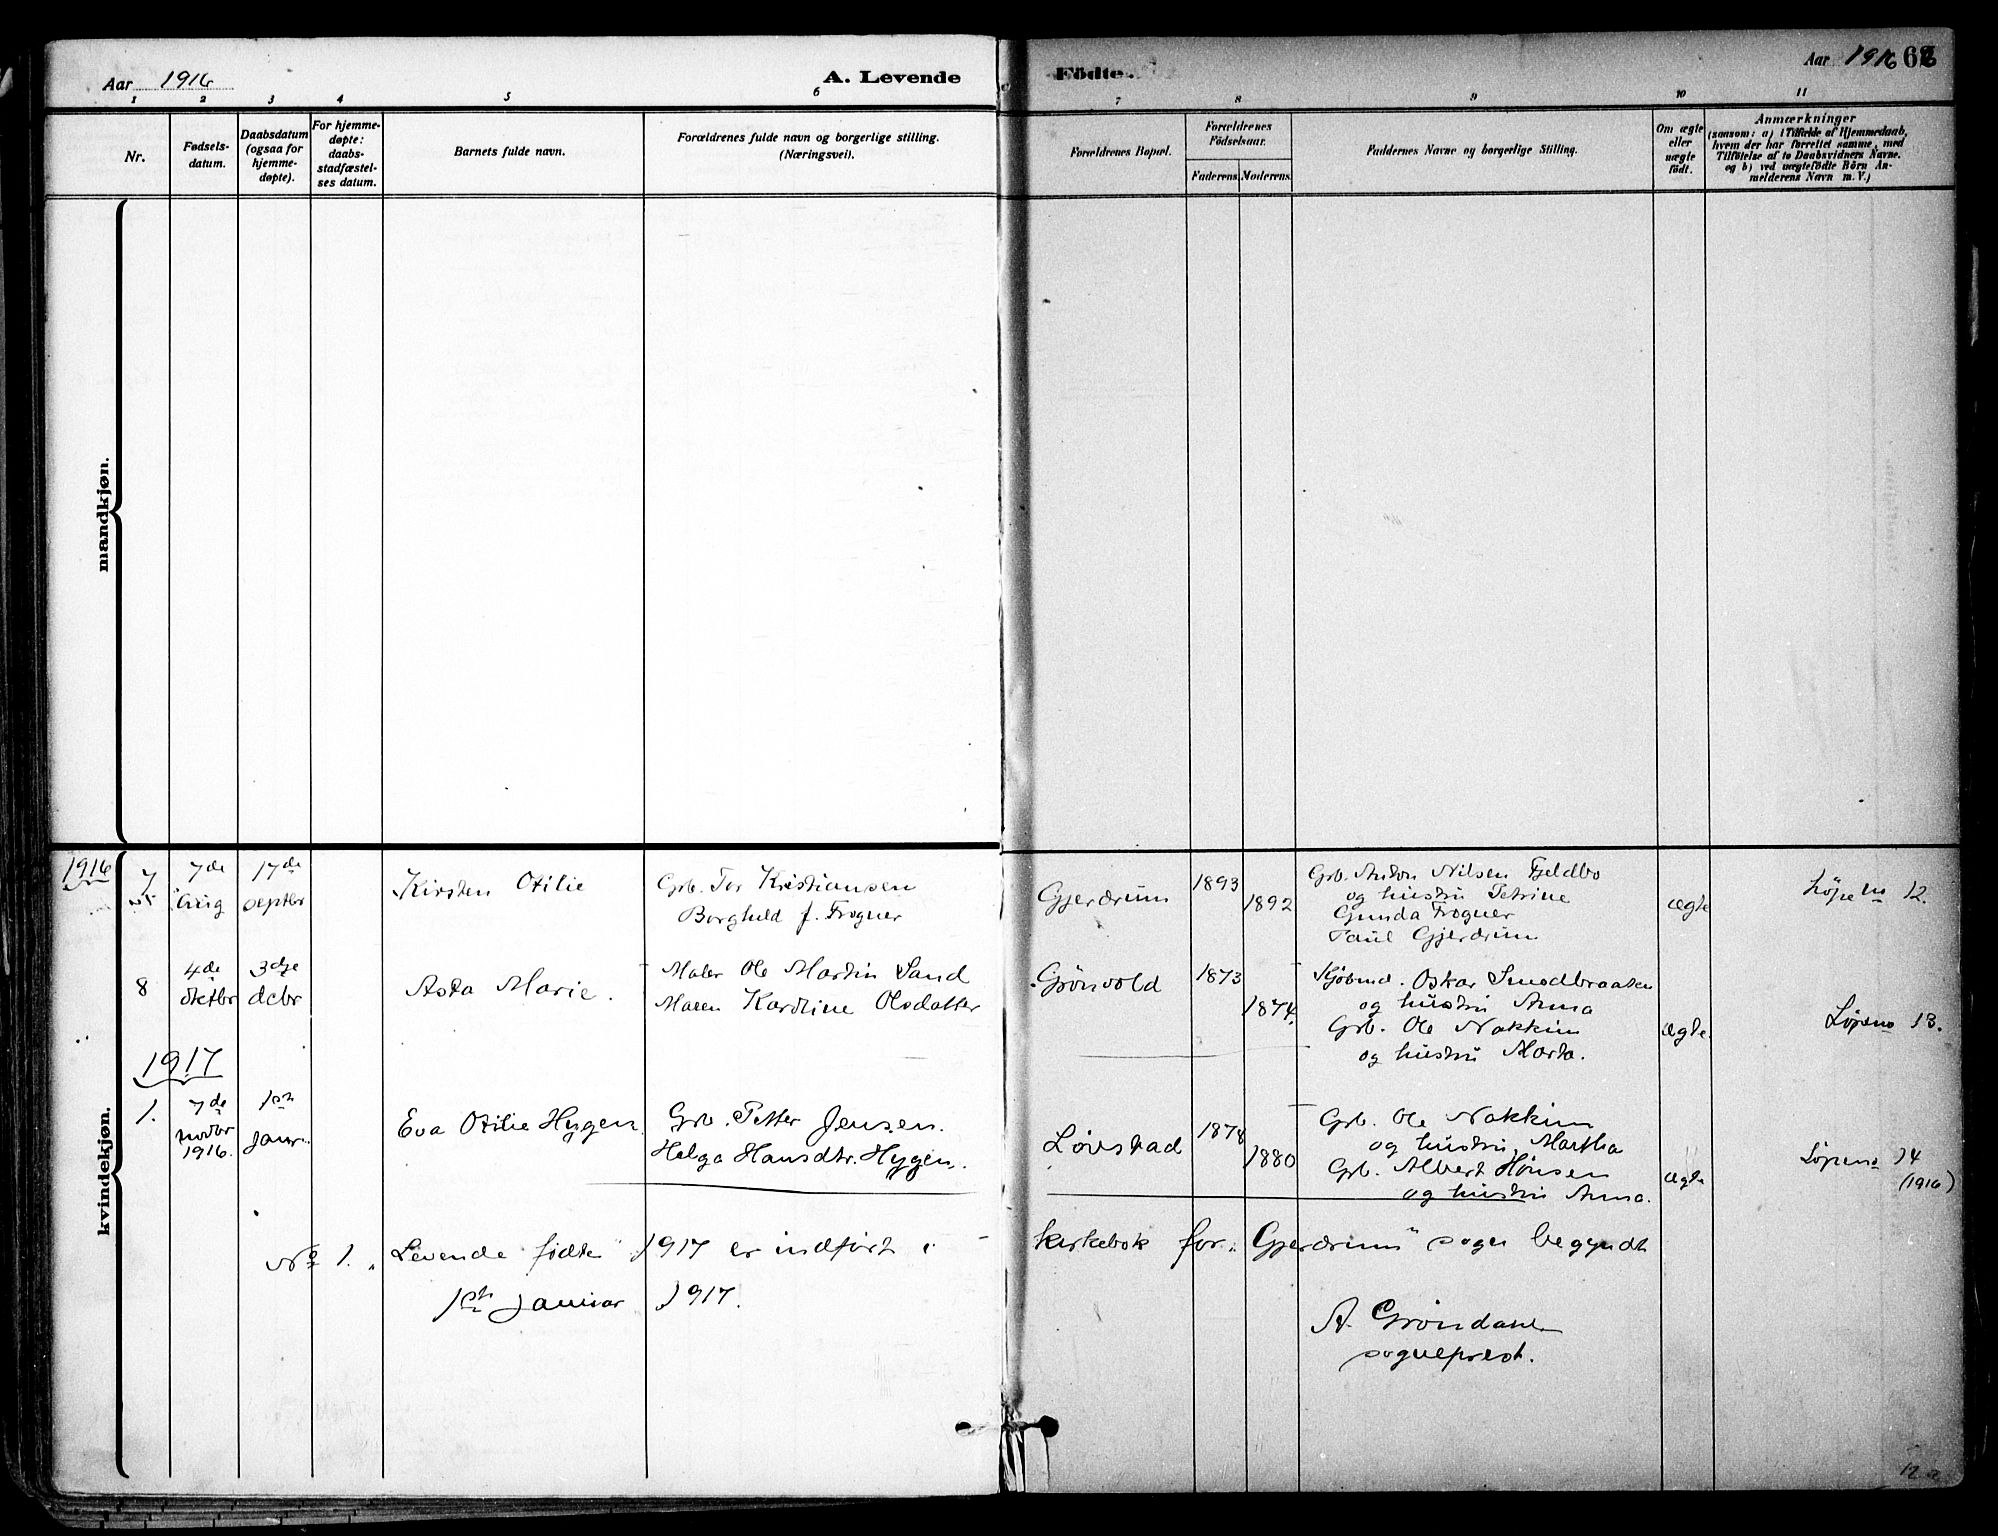 Aar 1916
A. Levende
Födte.
Aar 1916 62
1 2 3 4 5 6 7 8 9 10 11
Nr.
Fødsels-
datum.
Daabsdatum
(ogsaa for
hjemme-
døpte).
For hjemme-
døpte:
daabs-
stadfæstel-
ses datum.
Barnets fulde navn.
Forældrenes fulde navn og borgerlige stilling.
(Næringsvei).
Forældrenes Bopæl.
Forældrenes
Födselsaar.
Faderens. Moderens.
Faddernes Navne og borgerlige Stilling.
Om ægte
eller
uægte
födt.
Anmærkninger
(saasom: a) i Tilfælde af Hjemmedaab,
hvem der har forrettet samme, med
Tilföielse af to Daabsvidners Navne.
og b) ved uægtefödte Börn An-
melderens Navn m. V.)
mandkjøn.
kvindekjøn.
1916
7 7de aug 17de septbr
Kirsten Otilie
Grb. Tor Kristiansen
Borghild f. Frogner
Gjerdrum 1893 1892
Grb. Anton Nilsen Fjeldbo
og hustru Petrine
Gunda Frogner
Paul Gjerdrum
ægte
Løpeno 12.
8 4de oktbr 3dje debr
Asta Marie.
Maler Ole Martin Sand
Maren Karoline Olsdatter
Grönvold 1873 1874.
Kjøbmd. Oskar Smedbraaten
og hustru Anna
Grb. Ole Nakkim
og hustru Marta.
ægte.
Løpeno 13.
1917
1. 7de novbr 1916. 1ste januar
Eva Otilie Hygen.
Grb. Petter Jensen.
Helga Hansdtr. Hygen.
Lövstad 1878 1880
Grb. Ole Nakkim
og hustru Martha
Grb. Albert Hönsen
og hustru Anna.
ægte
Løpeno 14
(1916)
No 1. „Levende fødte" 1917 er indført i kirkebok for „Gjerdrum" sogn begyndt
1ste januar 1917.
A. Gröndahl
sogneprest.